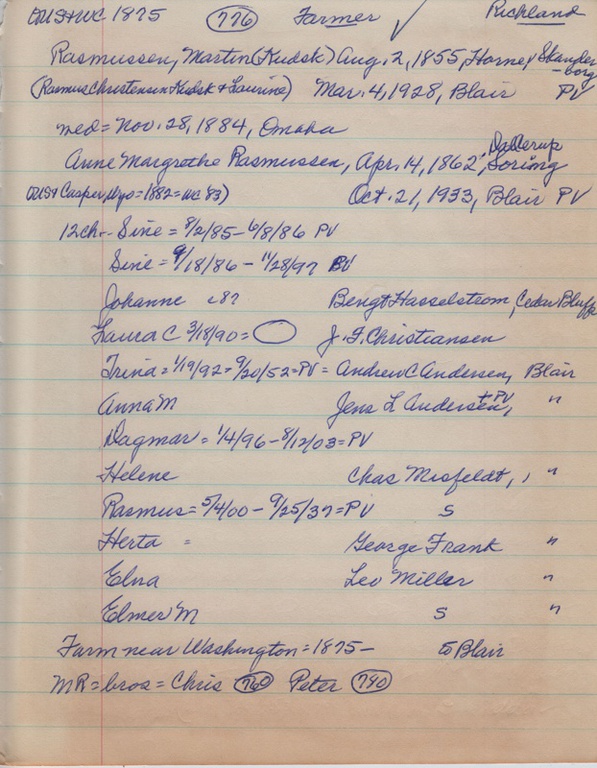 OUS+WC 1875 776 Farmer ✓ Richland
Rasmussen, Martin (Kudsk) Aug. 2, 1855, Horney Skander-borg
(Rasmus Christensen Kudsk + Laurine) Mar. 4, 1928, Blair PV
med = Nov. 28, 1884, Omaha
Anne Margrethe Rasmussen, Apr. 14, 1862, Dallerup Soring
(OUS+ Casper, Wyo = 1882 = WC 83) Oct. 21, 1933, Blair PV
12ch - Sine = 8/2/85 - 6/8/86 PV
Sine = 9/18/86 - 11/28/97 BV
Johanne c87 Bengt Hasselstrom, Cedar Bluffs
Laura C 3/18/90 = J. F. Christiansen
Trina = 1/19/92 = 9/20/52 = PV = Andrew C Andersen, Blair
Anna M Jens L Andersen, + PV "
Dagmar = 1/4/96 - 8/12/03 = PV
Helene Chas Misfeldt, , "
Rasmus = 5/4/00 - 9/25/37 = PV S
Herta = George Frank "
Elna Leo Miller "
Elmer M S "
Farm near Washington = 1875 - to Blair
MR = bros = Chris 760 Peter 740